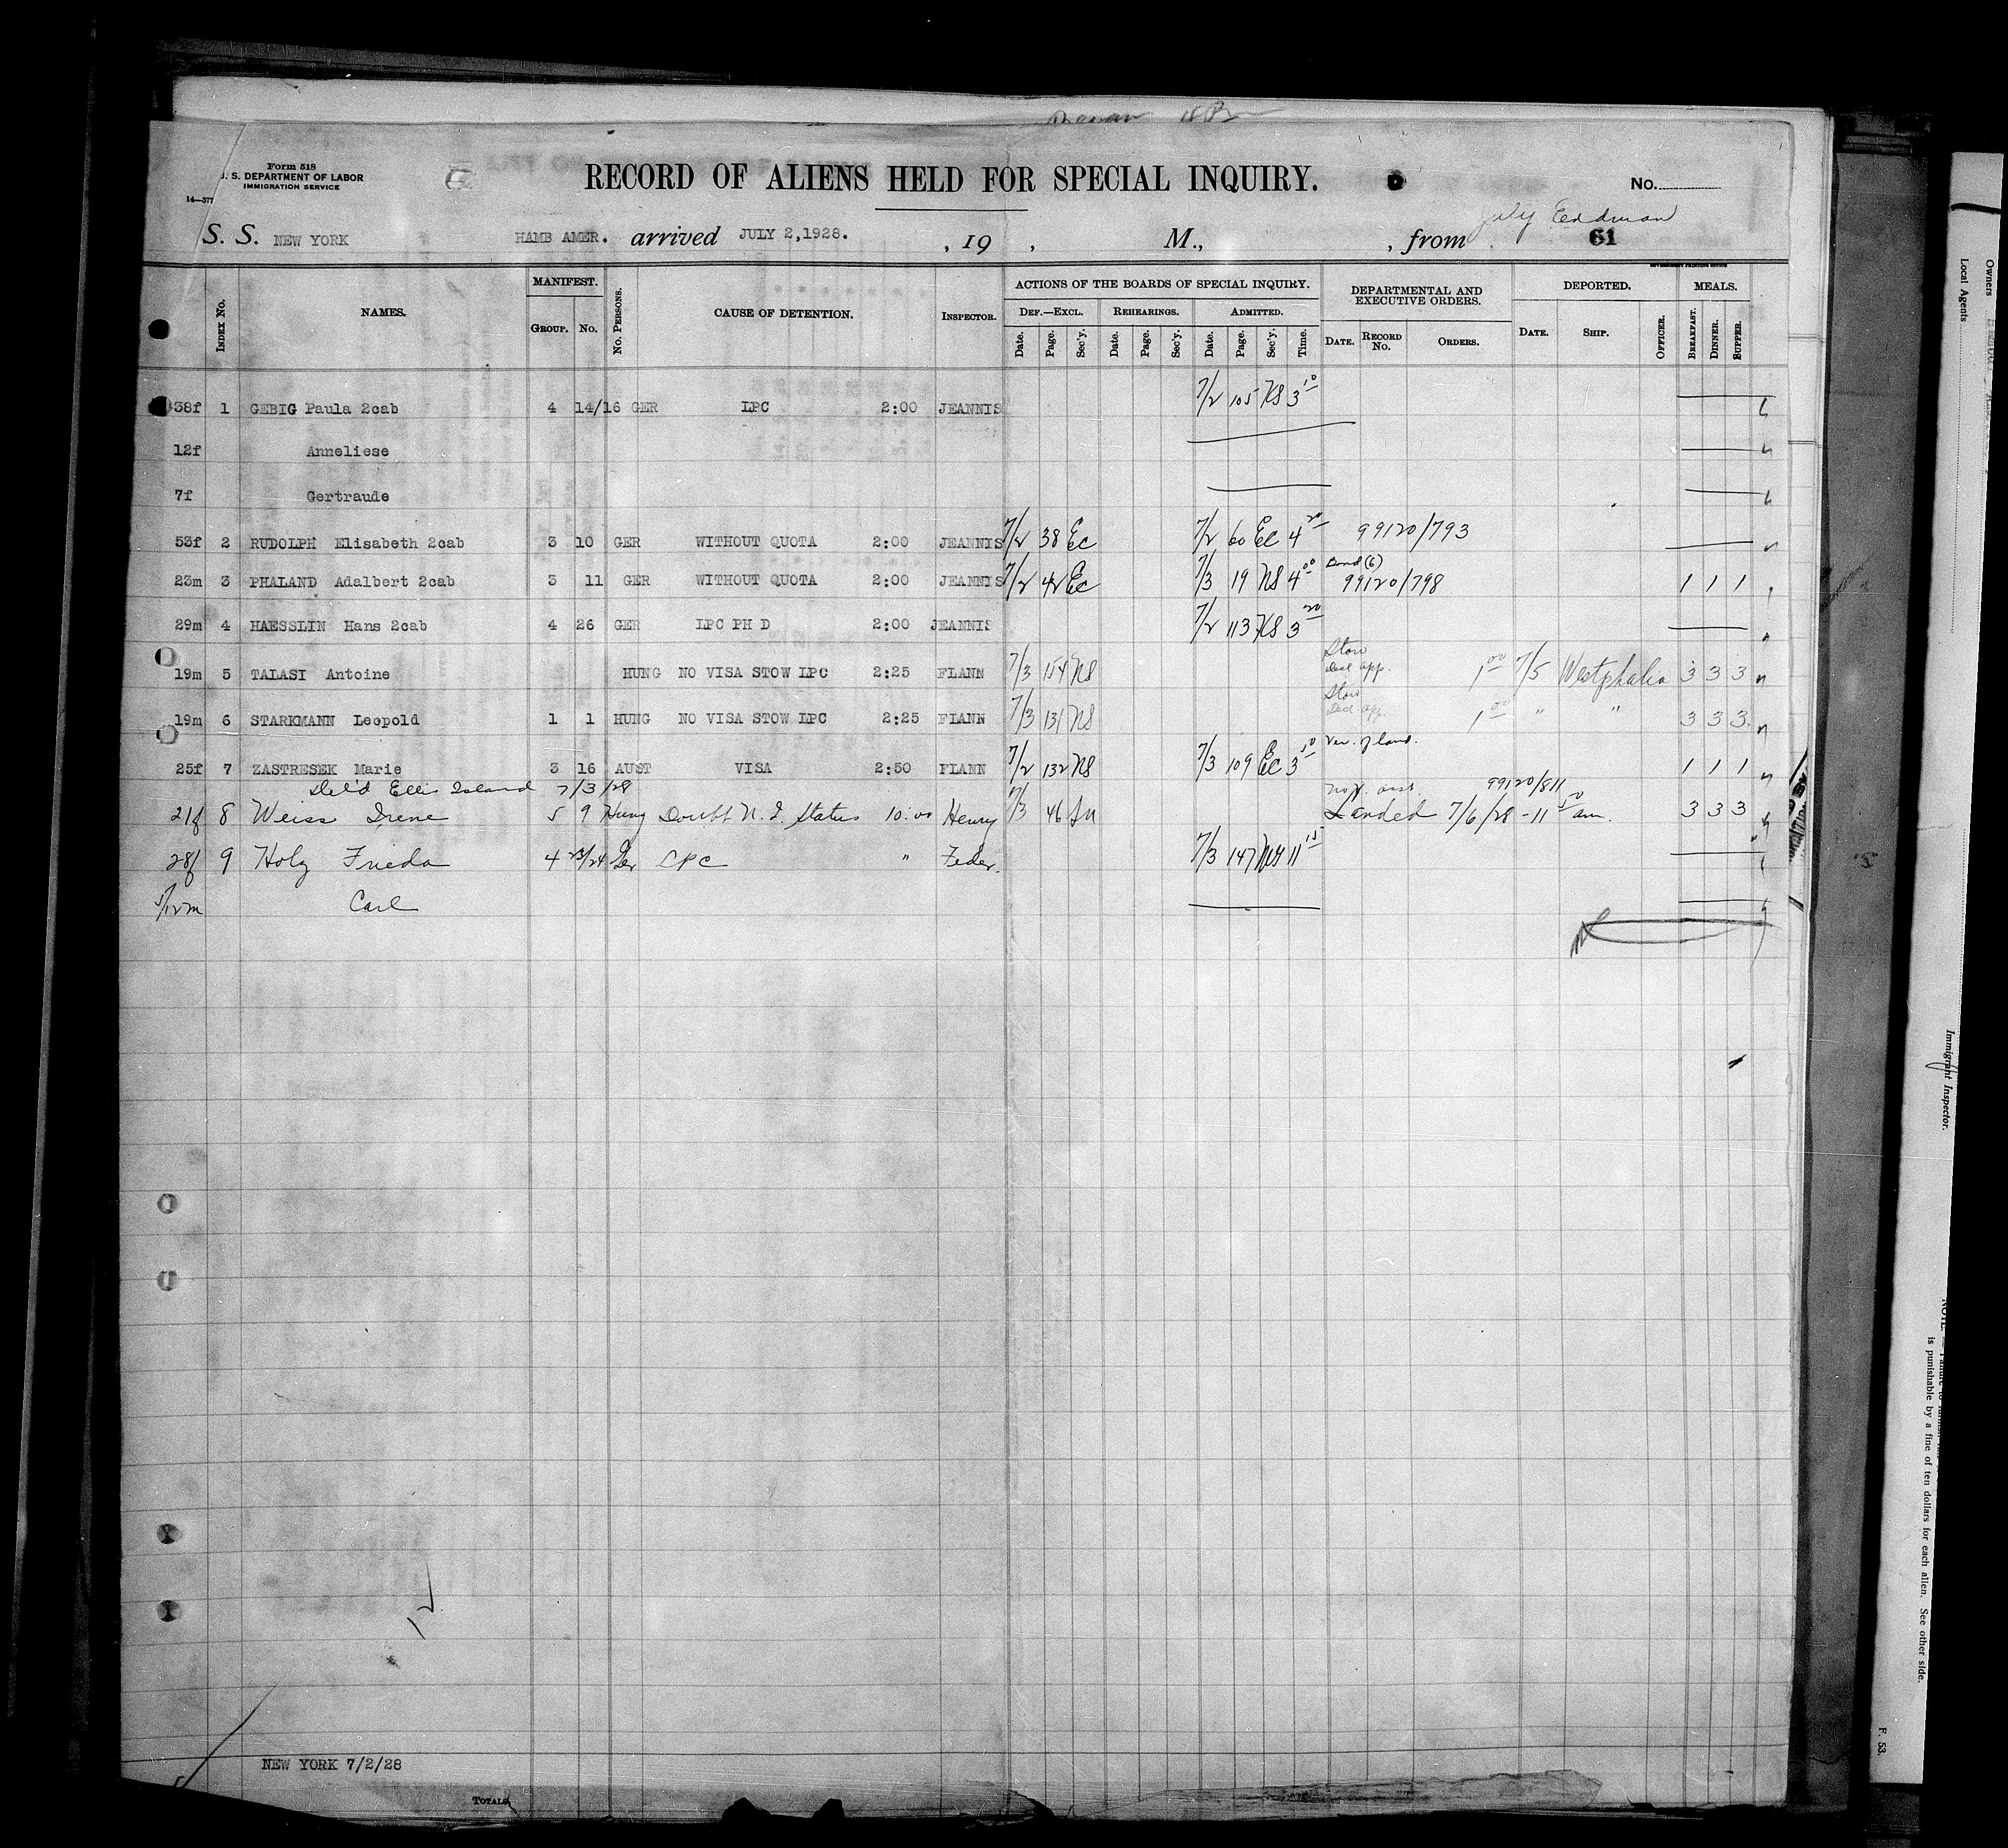 Form 518
U. S. DEPARTMENT OF LABOR
IMMIGRATION SERVICE
14—377
RECORD OF ALIENS HELD FOR SPECIAL INQUIRY.
No.
S. S. NEW YORK HAMB AMER. arrived JULY 2,1928. , 19 , M., , from 61
GOVERNMENT PRINTING OFFICE
Index No. NAMES. MANIFEST. Group. No. No. Persons. CAUSE OF DETENTION. Inspector. ACTIONS OF THE BOARDS OF SPECIAL INQUIRY. DEPARTMENTAL AND EXECUTIVE ORDERS. DEPORTED. MEALS.
Def.—Excl. Rehearings. Admitted.
Date. Page. Sec'y. Date. Page. Sec'y. Date. Page. Sec'y. Time. Date. Record No. Orders. Date. Ship. Officer. Breakfast. Dinner. Supper.
38f 1 GEBIG Paula 2cab 4 14/16 GER LPC 2:00 JEANNIS 7/2 105 NS 3 10
12f Anneliese
7f Gertraude
53f 2 RUDOLPH Elisabeth 2cab 3 10 GER WITHOUT QUOTA 2:00 JEANNIS 7/2 38 Ec 7/2 60 Ec 4 20 99120/793
23m 3 PHALAND Adalbert 2cab 3 11 GER WITHOUT QUOTA 2:00 JEANNIS 7/2 42 Ec 7/3 19 NS 4 00 Cond (6) 99120/798 1 1 1
29m 4 HAESSLIN Hans 2cab 4 26 GER LPC PH D 2:00 JEANNIS 7/2 113 NS 3 20
19m 5 TALASI Antoine HUNG NO VISA STOW LPC 2:25 FLANN 7/3 154 NS Stow Decl app. 1 00 7/5 Westphalia 3 3 3
19m 6 STARKMANN Leopold 1 1 HUNG NO VISA STOW LPC 2:25 FLANN 7/3 131 NS Stow Decl app. 1 00 " " 3 3 3
25f 7 ZASTRESEK Marie 3 16 AUST VISA 2:50 FLANN 7/2 132 NS 7/3 109 Ec 3 50 Ver. of land. 1 1 1
Del'd Ellis Island 7/3/28
21f 8 Weiss Irene 5 9 Hung Doubt N. I. Status 10:00 Henry 7/3 46 99120/811 Landed 7/6/28 - 11 50 am. 3 3 3
28f 9 Holz Frieda 4 23/24 Ger LPC " Feder. 7/3 147 11 15
5/12m Carl
NEW YORK 7/2/28
Totals
Owners
Local Agents
Immigrant Inspector.
is punishable by a fine of ten dollars for each alien. See other side.
F. 53.